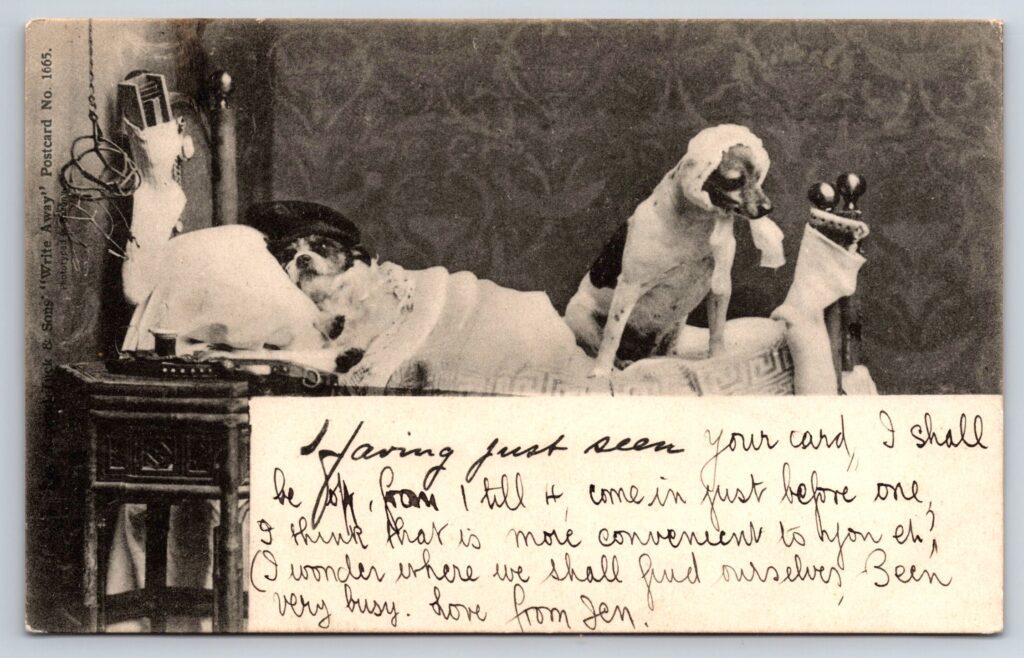 & Sons' "Write Away" Postcard No. 1665.
Having just seen your card, I shall
be off, from 1 till 4, come in just before one,
I think that is more convenient to you eh?
(I wonder where we shall find ourselves, Been
very busy. Love from Jen.